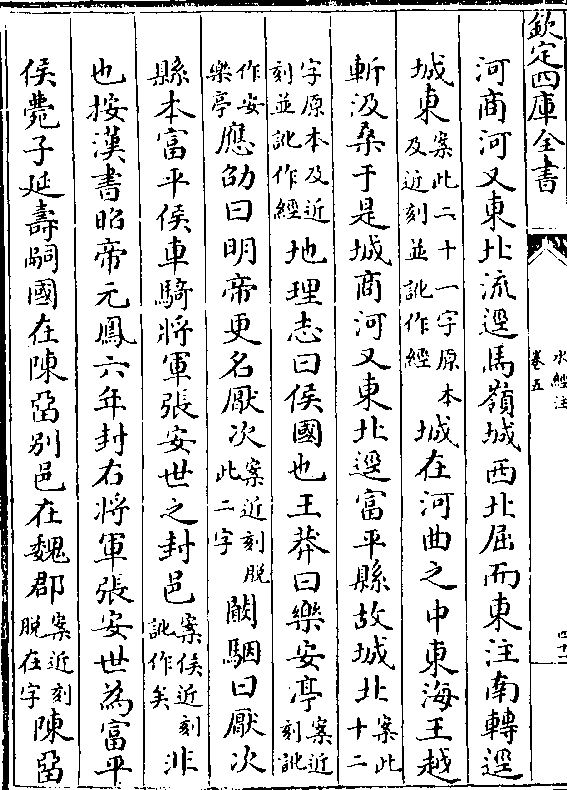 欽定四庫全書
水經注
卷五
四十二
河商河又東北流逕馬嶺城西北屈而東注南轉逕
城東案此二十一字原本及近刻並訛作經城在河曲之中東海王越
斬汲桑于是城商河又東北逕富平縣故城北案此十二
字原本及近刻並訛作經地理志曰侯國也王莽曰樂安亭案近刻訛
作安樂亭應劭曰明帝更名厭次案近刻脫此二字闞駰曰厭次
縣本富平侯車騎將軍張安世之封邑案侯近刻訛作矣非
也按漢書昭帝元鳳六年封右將軍張安世為富平
侯薨子延壽嗣國在陳留别邑在魏郡案近刻脫在字陳留